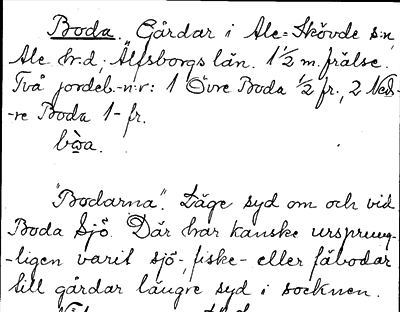 Boda. Gårdar i Ale=Skövde s:n,
Ale hr.d; Älfsborgs län. 1½ m. frälse.
Två jordeb.-n:r: 1 Övre Boda ½ fr., 2 Ned-
-re Boda 1- fr.
"Bodarna". Läge syd om och vid
Boda Sjö. Där har kanske ursprung-
-ligen varit sjö-, fiske- eller fäbodar
till gårdar längre syd i socknen.